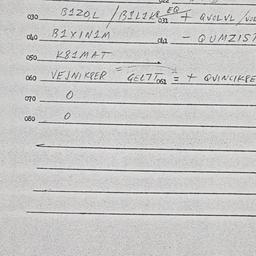 030 B1ZOL /B1L1KR EQ 031 + QVOLVL /
040 B1XIN1M 041 - QUMZIST
050 K81MAT
060 VEJNIKRER GELTT 061 = + QVINCIKRE
070 0
080 0